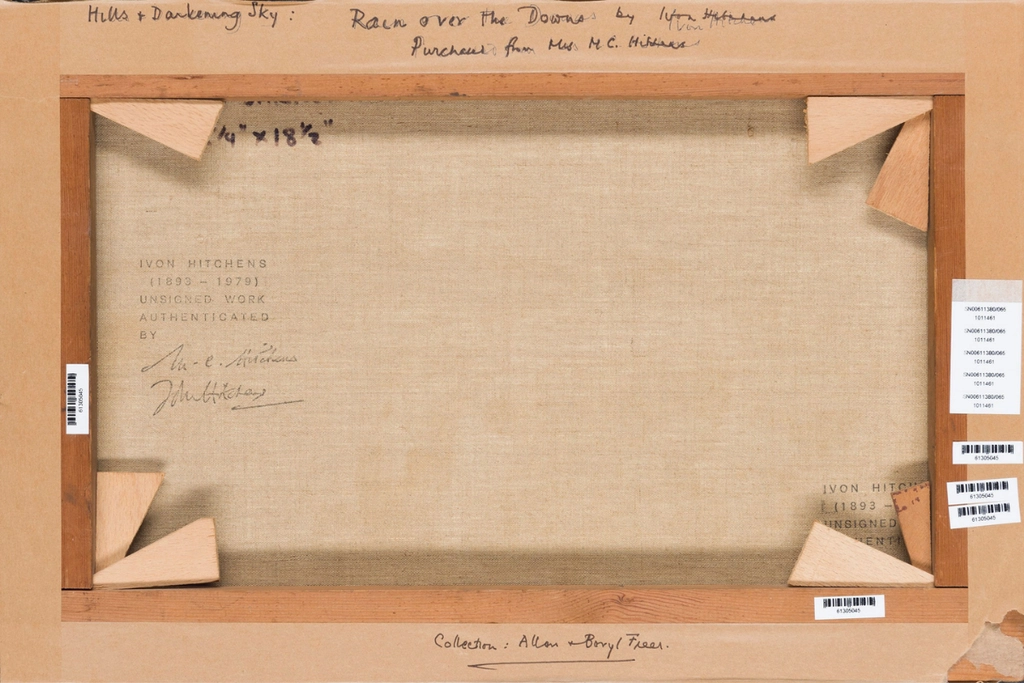 Hills & Darkening Sky: Rain over the Downs by Ivon Hitchens
Purchased from Mrs M.C. Hitchens
1/4" x 18 1/2"
IVON HITCHENS
(1893 – 1979)
UNSIGNED WORK
AUTHENTICATED
BY
M. C. Hitchens
John Hitchens
SN00611380/065
1011461
SN00611380/065
1011461
SN00611380/065
1011461
SN00611380/065
1011461
SN00611380/065
1011461
61305045
61305045
61305045
61305045
IVON HITCH
(1893 –
UNSIGNED
HENTI
61305045
Collection: Allan & Beryl Freer.